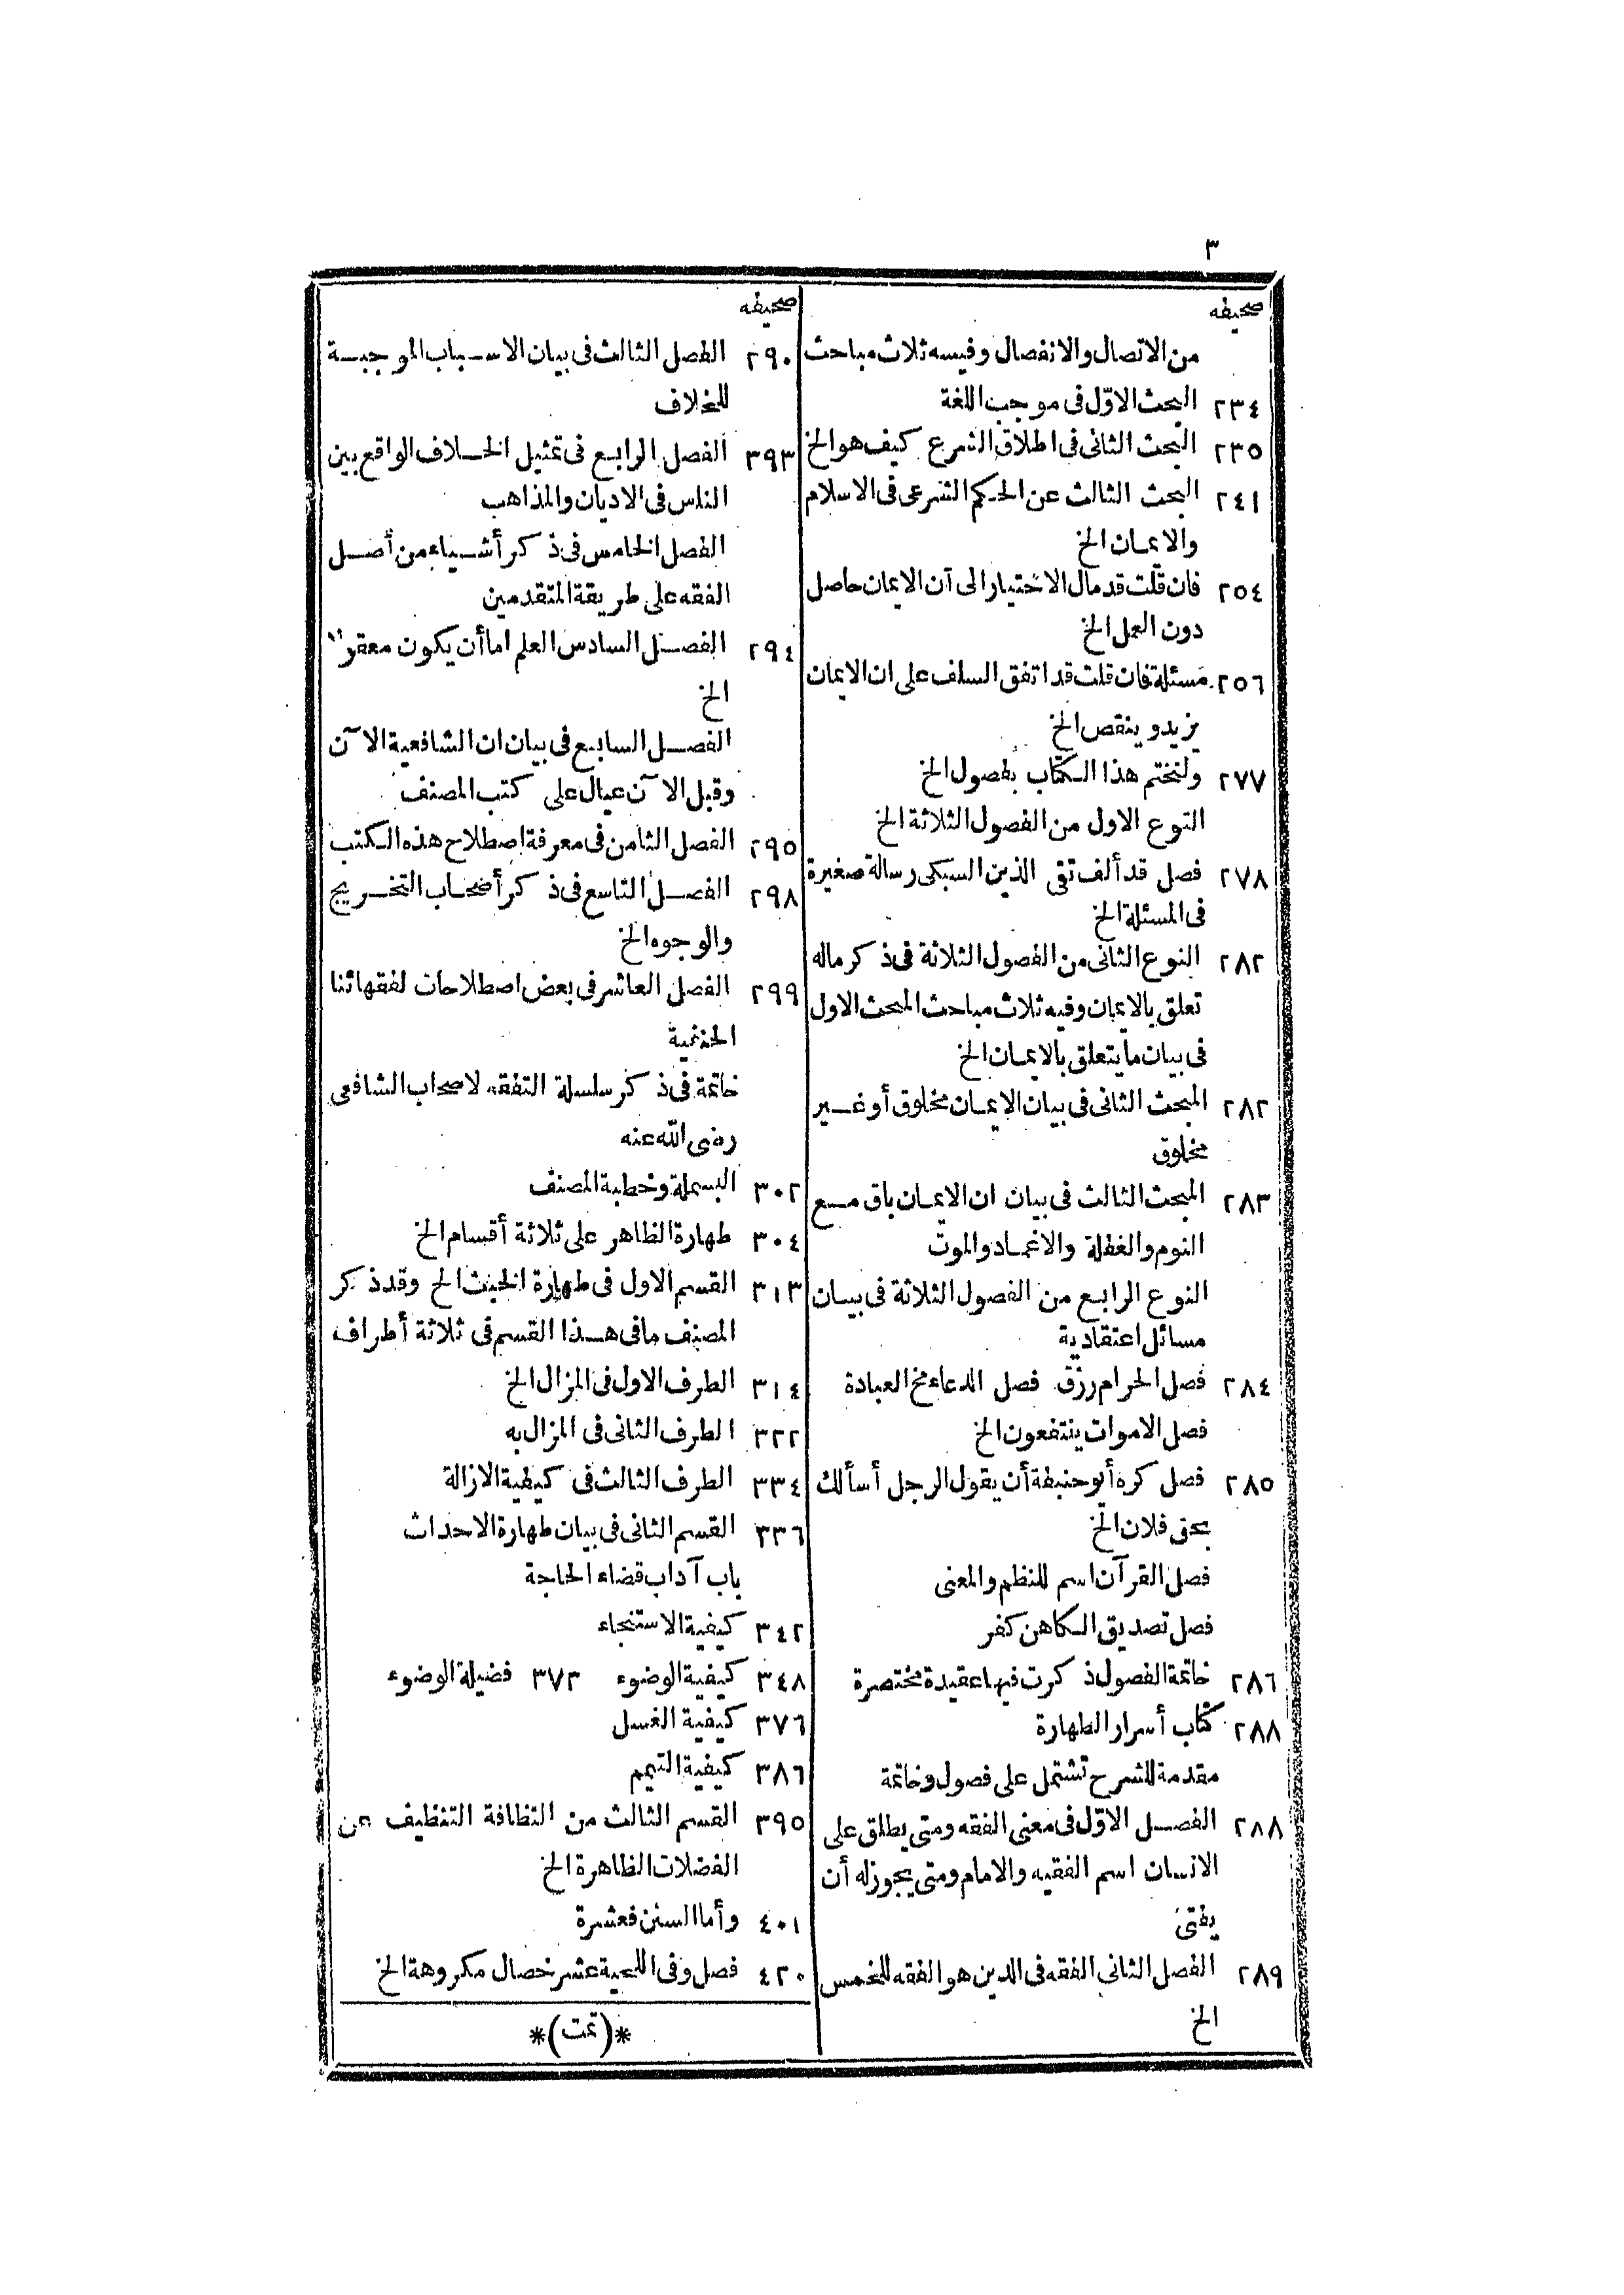 ٣
صحيفه
من الاتصال والانفصال وفيسه ثلاث مباحث
٢٣٤ البحث الاوّل فى موجب اللغة
٢٣٥ البحث الثانى فى اطلاق الشرع كيف هو الخ
٢٤١ البحث الثالث عن الحكم الشرعى فى الاسلام
والايمان الخ
٢٥٤ فان قلت قد مال الاختيار الى أن الايمان حاصل
دون العمل الخ
٢٥٦ مسئلة فان قلت قد اتفق السلف على ان الايمان
يزيد و ينقص الخ
٢٧٧ ولنختم هذا الكتاب بفصول الخ
النوع الاول من الفصول الثلاثة الخ
٢٧٨ فصل قد ألف تقى الدين السبكى رسالة صغيرة
فى المسئلة الخ
٢٨٢ النوع الثانى من الفصول الثلاثة فى ذكر ماله
تعلق بالايمان وفيه ثلاث مباحث المبحث الاول
فى بيان ما يتعلق بالايمان الخ
٢٨٢ المبحث الثانى فى بيان الايمان مخلوق أو غير
مخلوق
٢٨٣ المبحث الثالث فى بيان ان الايمان باق مع
النوم والغفلة والاغماء والموت
النوع الرابع من الفصول الثلاثة فى بيان
مسائل اعتقادية
٢٨٤ فصل الحرام رزق فصل الدعاء مخ العبادة
فصل الاموات ينتفعون الخ
٢٨٥ فصل كره أبو حنيفة أن يقول الرجل أسألك
بحق فلان الخ
فصل القرآن اسم للنظم والمعنى
فصل تصديق الكاهن كفر
٢٨٦ خاتمة الفصول ذكرت فيها عقيدة مختصرة
٢٨٨ كتاب أسرار الطهارة
مقدمة للشرح تشتمل على فصول وخاتمة
٢٨٨ الفصل الاوّل فى معنى الفقه ومتى يطلق على
الانسان اسم الفقيه والامام ومتى يجوز له أن
يفتى
٢٨٩ الفصل الثانى الفقه فى الدين هو الفقه للخمس
الخ
صحيفه
٢٩٠ الفصل الثالث فى بيان الاسباب الموجبة
للخلاف
٣٩٣ الفصل الرابع فى تمثيل الخلاف الواقع بين
الناس فى الاديان والمذاهب
الفصل الخامس فى ذكر أشياء من أصل
الفقه على طريقة المتقدمين
٢٩٤ الفصل السادس العلم اما أن يكون
الخ
الفصل السابع فى بيان ان الشافعية الآن
وقبل الآن عيال على كتب المصنف
٢٩٥ الفصل الثامن فى معرفة اصطلاح هذه الكتب
٢٩٨ الفصل التاسع فى ذكر أصحاب التخريج
والوجوه الخ
٢٩٩ الفصل العاشر فى بعض اصطلاحات لفقهائنا
الحنفية
خاتمة فى ذكر سلسلة التفقه لاصحاب الشافعى
رضى الله عنه
٣٠٢ البسملة وخطبة المصنف
٣٠٤ طهارة الظاهر على ثلاثة أقسام الخ
٣١٣ القسم الاول فى طهارة الخبث الخ وقد ذكر
المصنف ما فى هذا القسم فى ثلاثة أطراف
٣١٤ الطرف الاول فى المزال الخ
٣٢٢ الطرف الثانى فى المزال به
٣٣٤ الطرف الثالث فى كيفية الازالة
٣٣٦ القسم الثانى فى بيان طهارة الاحداث
باب آداب قضاء الحاجة
٣٤٢ كيفية الاستنجاء
٣٤٨ كيفية الوضوء ٣٧٣ فضيلة الوضوء
٣٧٦ كيفية الغسل
٣٨٦ كيفية التيمم
٣٩٥ القسم الثالث من النظافة التنظيف عن
الفضلات الظاهرة الخ
٤٠١ وأما السنن فعشرة
٤٢٠ فصل وفى اللحية عشر خصال مكروهة الخ
*(تمت)*